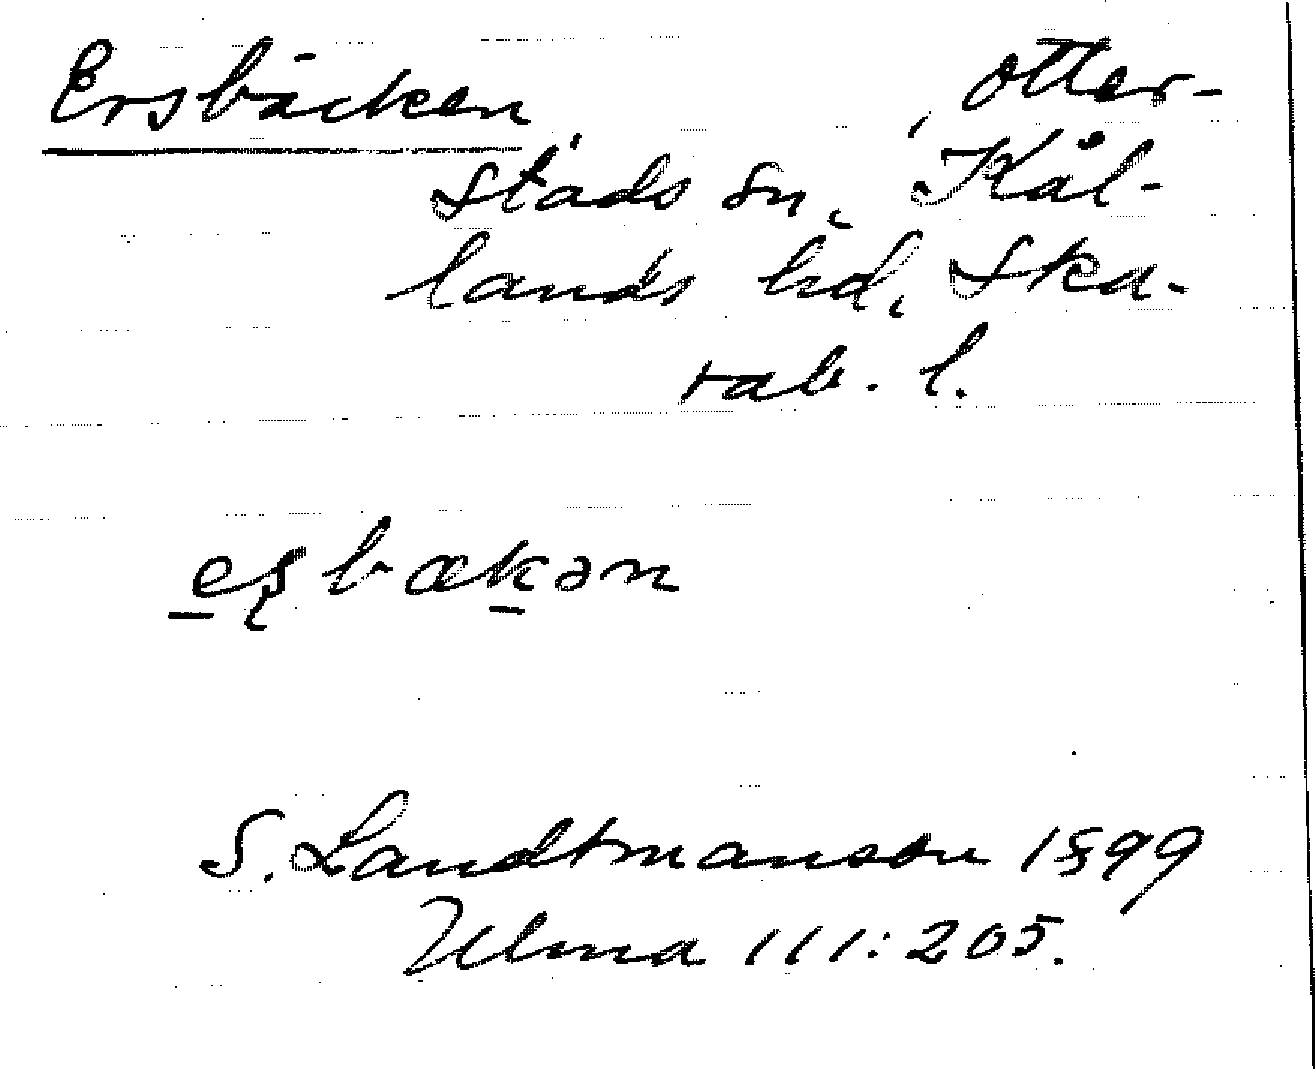 Ersbäcken, Otter-
stads sn, Kål-
lands hd, Ska-
rab. l.
eʂbækən
S. Landtmanson 1899
Ulma 111:205.